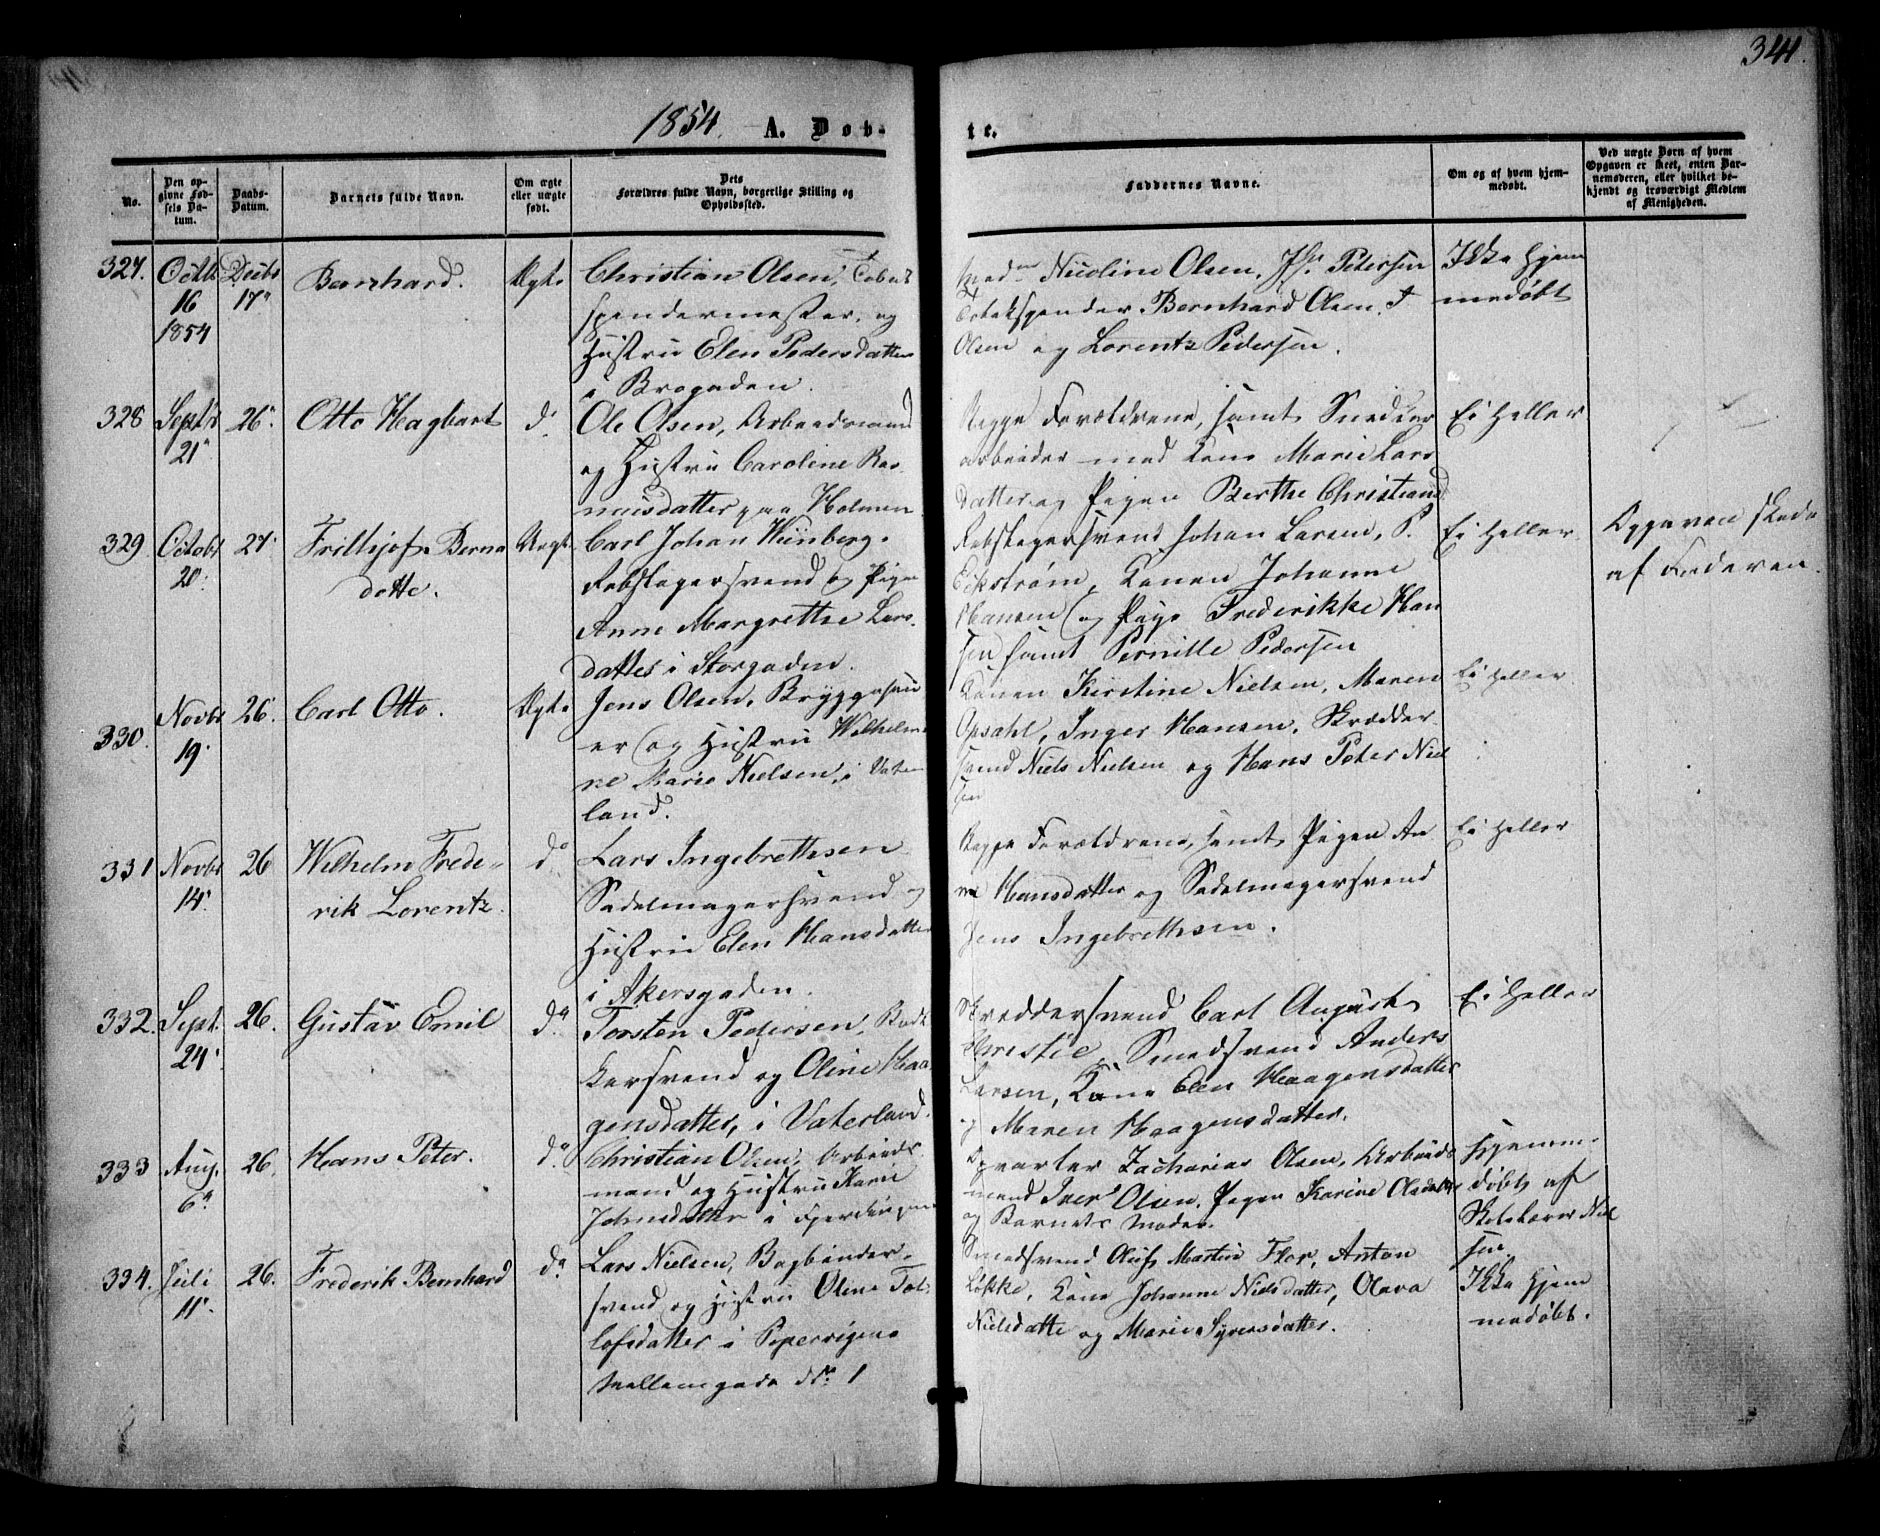 341.
1854. A. Døb-
te.
No.
Den op-
givne Fød-
sels Da-
tum.
Daabs-
Datum.
Barnets fulde Navn.
Om ægte
eller uægte
født.
Dets
Forældres fulde Navn, borgerlige Stilling og
Opholdssted.
Faddernes Navne.
Om og af hvem hjem-
medøbt.
Ved uægte Børn af hvem
Opgaven er skeet, enten Bar-
nemoderen, eller hvilket be-
kjendt og troværdigt Medlem
af Menigheden.
327.
Octb
16
1854
Decbr
17"
Bernhard.
Ægte
Christian Olsen, Tobak
spindermester, og
Hustru Elen Pedersdatter
i Brogaden.
Mad Nicoline Olsen, Petersen
Tobakspinder Bernhard Olsen,
Olsen og Lorentz Pedersen.
Ikke hjem
medøbt
328
Septb
21"
26"
Otto Hagbart
d
Ole Olsen, Arbeidsmand
og Hustru Caroline Ras
musdatter paa Holmen
Begge Forældrene, samt Snedker
arbeider med Kone Marie Lars
datter og Pigen Berthe Christiand
Ei heller
329
Octobr
20.
27.
Frithjof Berna
dotte.
Uægte
Carl Johan Wiinberg,
Rebslagersvend og Pigen
Anne Margrethe Lars
datter i Storgaden.
Rebslagersvend Johan Larsen, P.
Eckstrøm, Konen Johanne
Hansen og Pige Frederikke Han
sen samt Pernille Pedersen
Ei heller
Opgaven skede
af Faderen.
330.
Novbr
19.
26.
Carl Otto.
Ægte
Jens Olsen, Bryggesvu
er og Hustru Wilhelmi
ne Marie Nielsen, i Vater
land.
Konen Kirstine Nielsen, Maren
Opsahl, Inger Hansen, Skrædder
svend Niels Nielsen og Hans Peter Niel
sen
Ei heller
331
Novbr
14.
26
Wilhelm Frede-
rik Lorentz.
do
Lars Ingebrethsen
Sadelmagersvend og
Hustru Elen Hansdatter
i Akersgaden.
Begge Forældrene, samt Pigen An
ne Hansdatter og Sadelmagersvend
Jens Ingebrethsen.
Ei heller
332.
Sept.
24.
26.
Gustav Emil
do
Torsten Pedersen, Bød
kersvend og Oline Haa
gensdatter, i Vaterland.
Skreddersvend Carl August
Christie, Smedsvend Anders
Larsen, Kone Elen Haagensdatter
og Maren Haagensdatter.
Ei heller
333
Aug.
6
26.
Hans Peter.
do
Christian Olsen, Arbeids
mand og Hustru Karie
Johnsdatter i Fjerdingen
Qvarter Zacharias Olsen, Arbeids
mand Iver Olsen, Pigen Karine Olsdatter
og Barnets Moder.
Hjemme-
døbt af
Skolelærer Niel
sen
334.
Juli
11.
26.
Frederik Bernhard
do
Lars Nielsen, Bogbinder-
svend og Hustru Oline Tol
lofsdatter i Pipervigens
Mellemgade No. 1
Smedsvend Oluf Martin Flor, Anton
Løkke, Kone Johanne Nielsdatter, Olava
Nielsdatte og Marie Syversdatter.
Ikke hjem
medøbt.